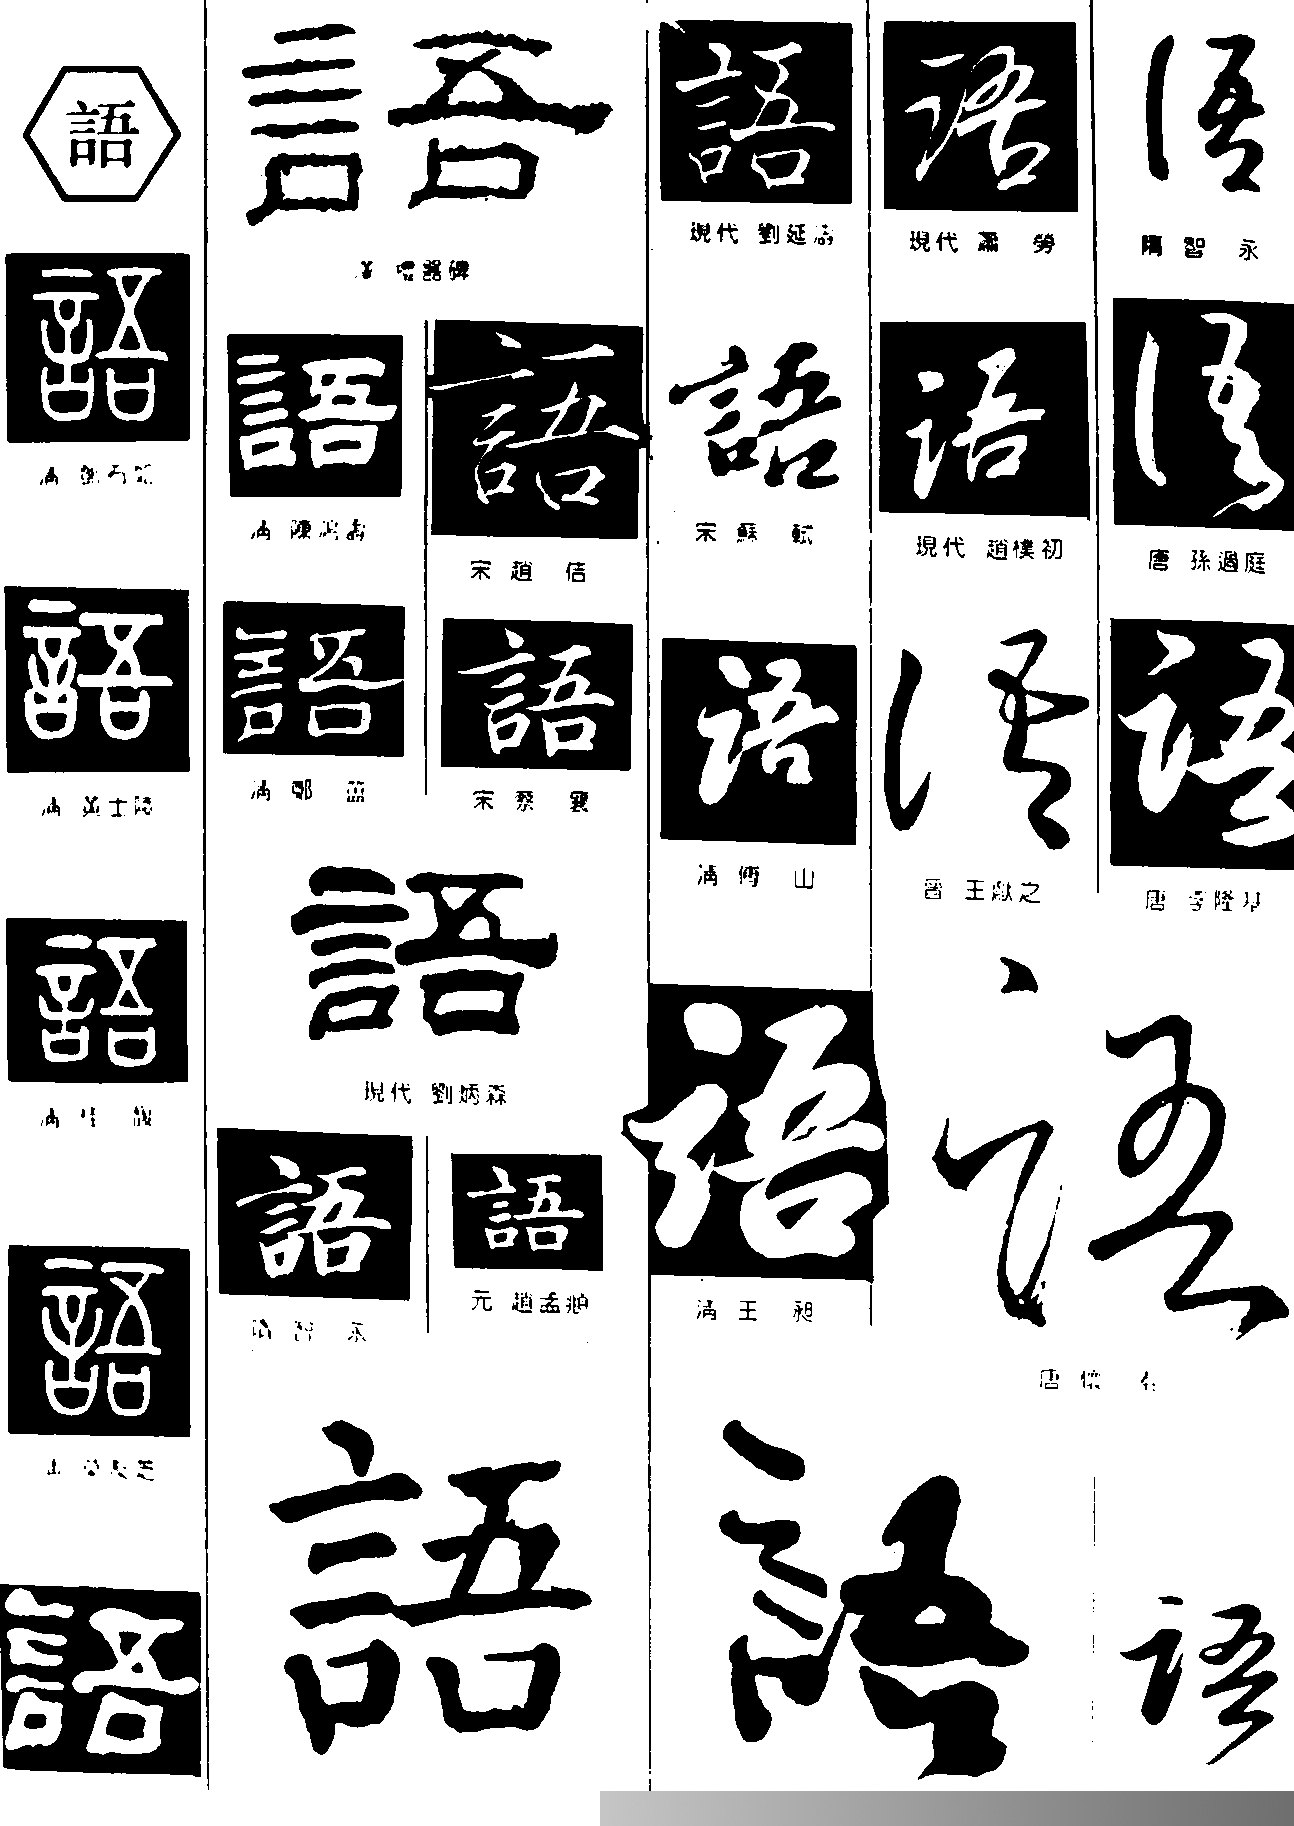 語
語
語
語
語
語
語
漢 㗊器碑
語
清 陳鴻壽
語
宋 趙 佶
語
清 鄭 簠
語
宋 蔡 襄
語
現代 劉炳森
語
隋 智 永
語
元 趙孟頫
語
語
現代 劉延濤
語
宋 蘇 軾
語
清 傅 山
語
清 王 昶
語
語
現代 蕭 勞
語
現代 趙樸初
語
晋 王獻之
語
唐 懷 素
語
隋 智 永
語
唐 孫過庭
語
唐 李隆基
語